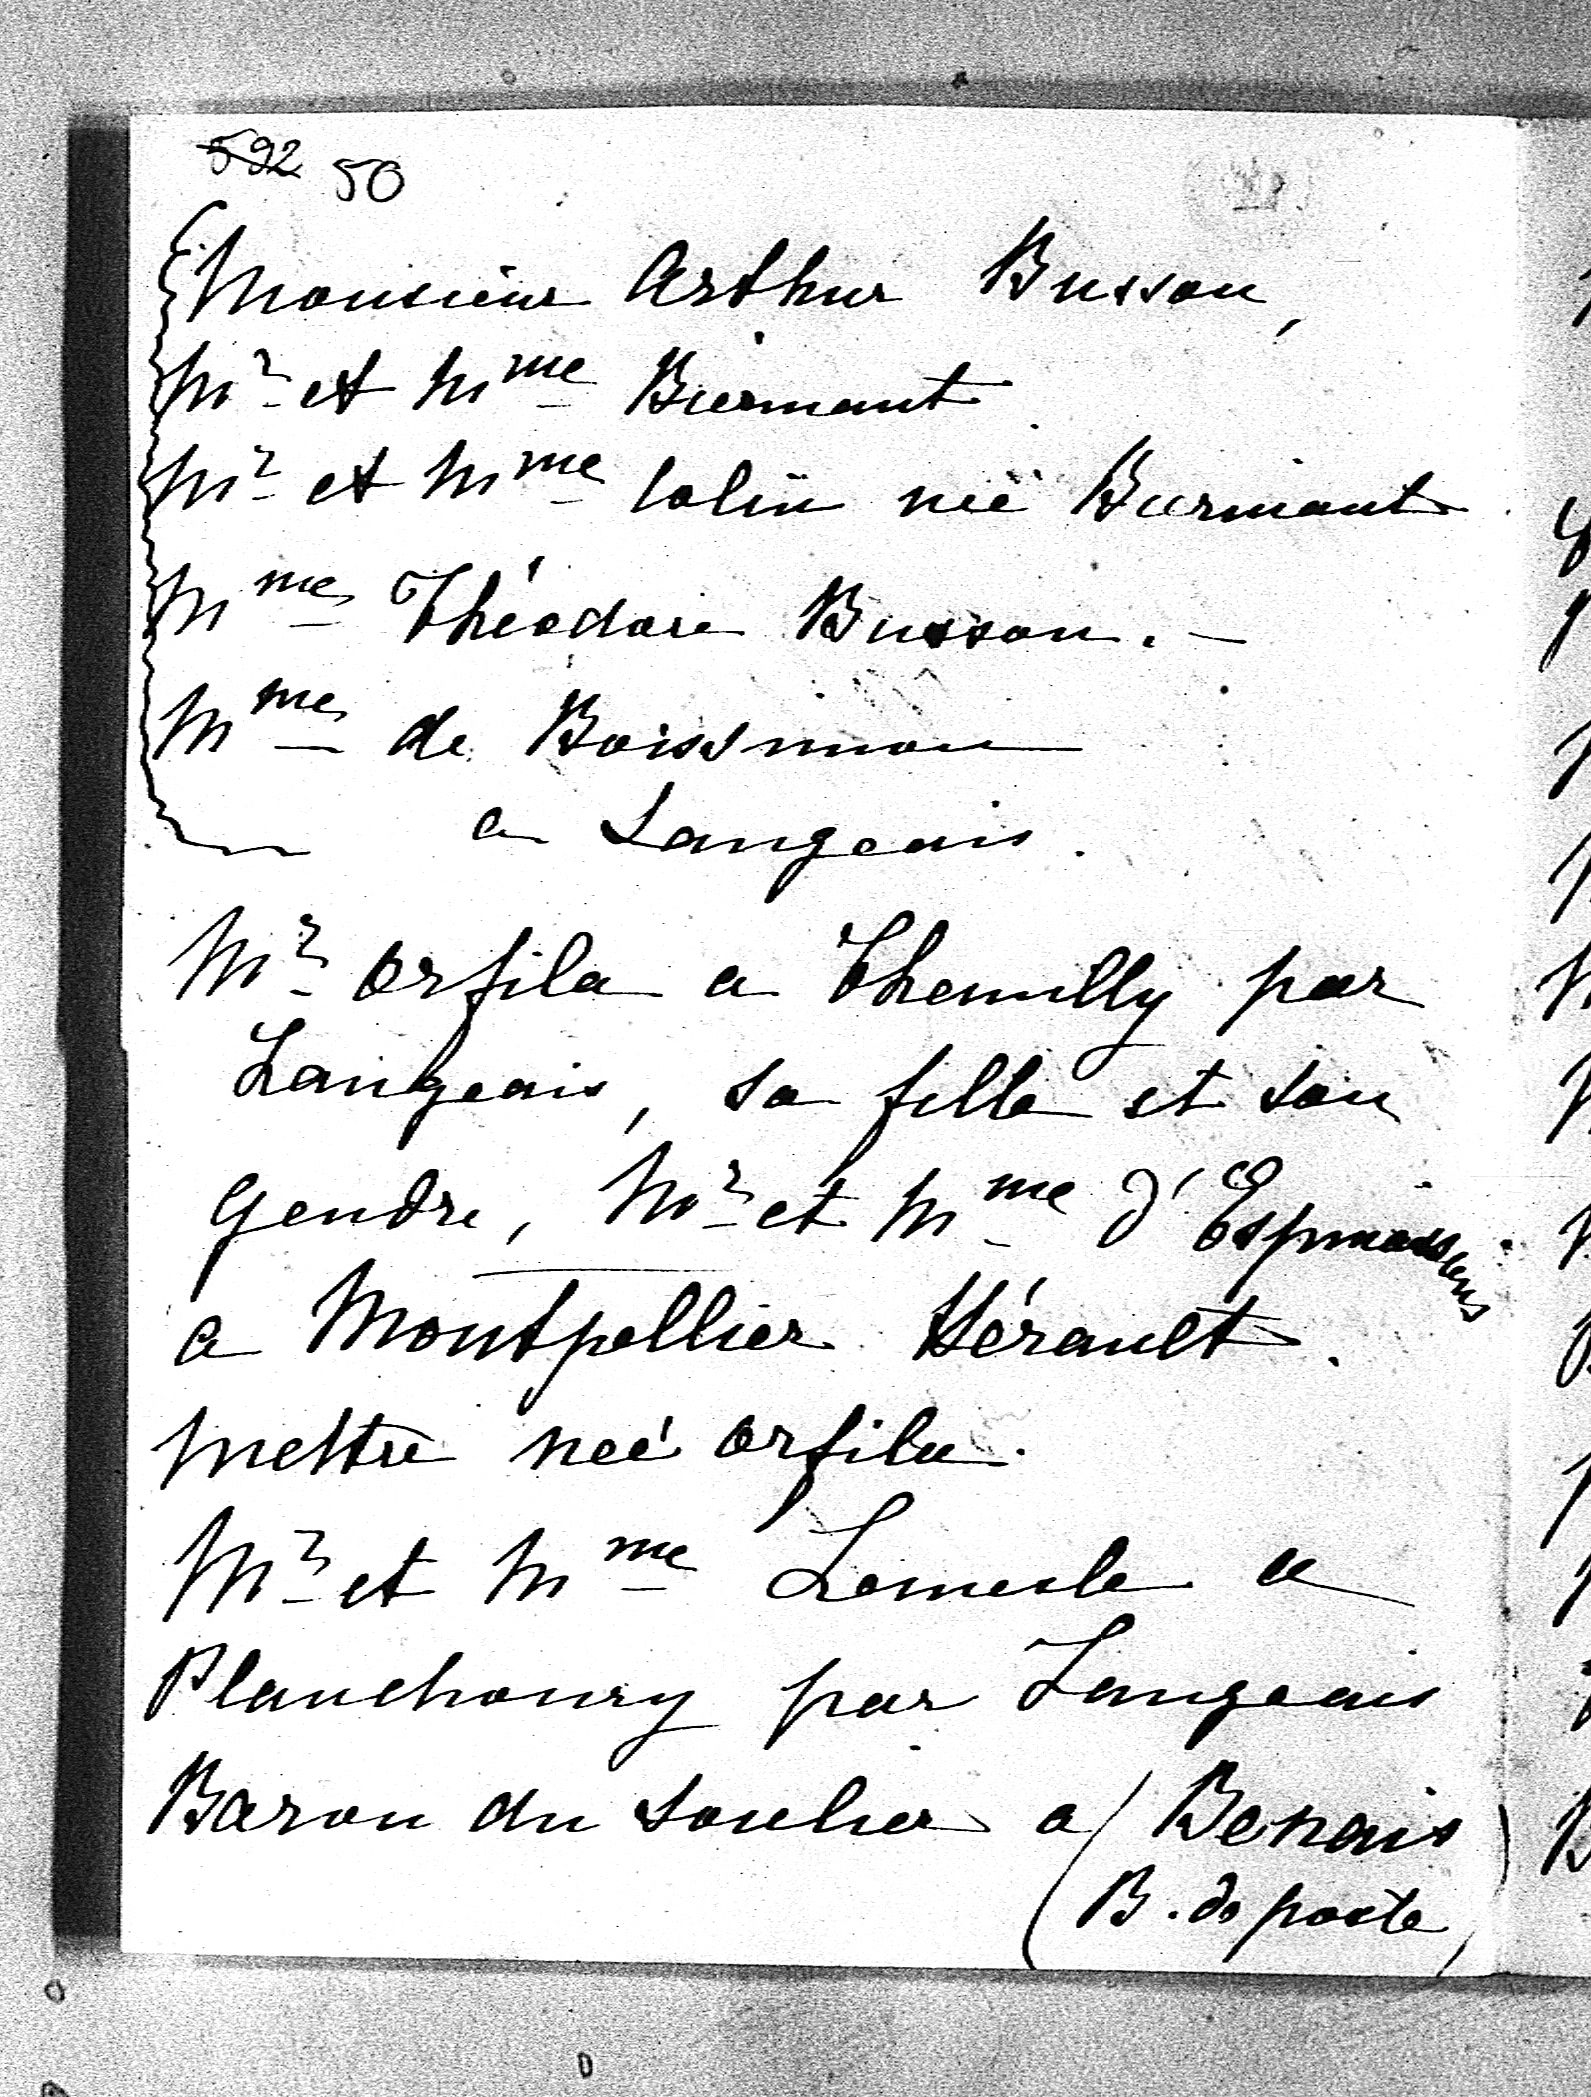 592 50
Monsieur Arthur Busson,
Mr et Mme Biermant
Mr et Mme Colin née Biermant
Mme Théodore Busson. —
Mme de Boissimon
a Langeais.
Mr Orfila a Chemilly par
Langeais, sa fille et son
gendre, Mr et Mme d'Espinassous
a Montpellier Hérault.
mettre née Orfila.
Mr et Mme Lemesle a
Planchoury par Langeais
Baron du Soulier a (Benais
B. de poste)